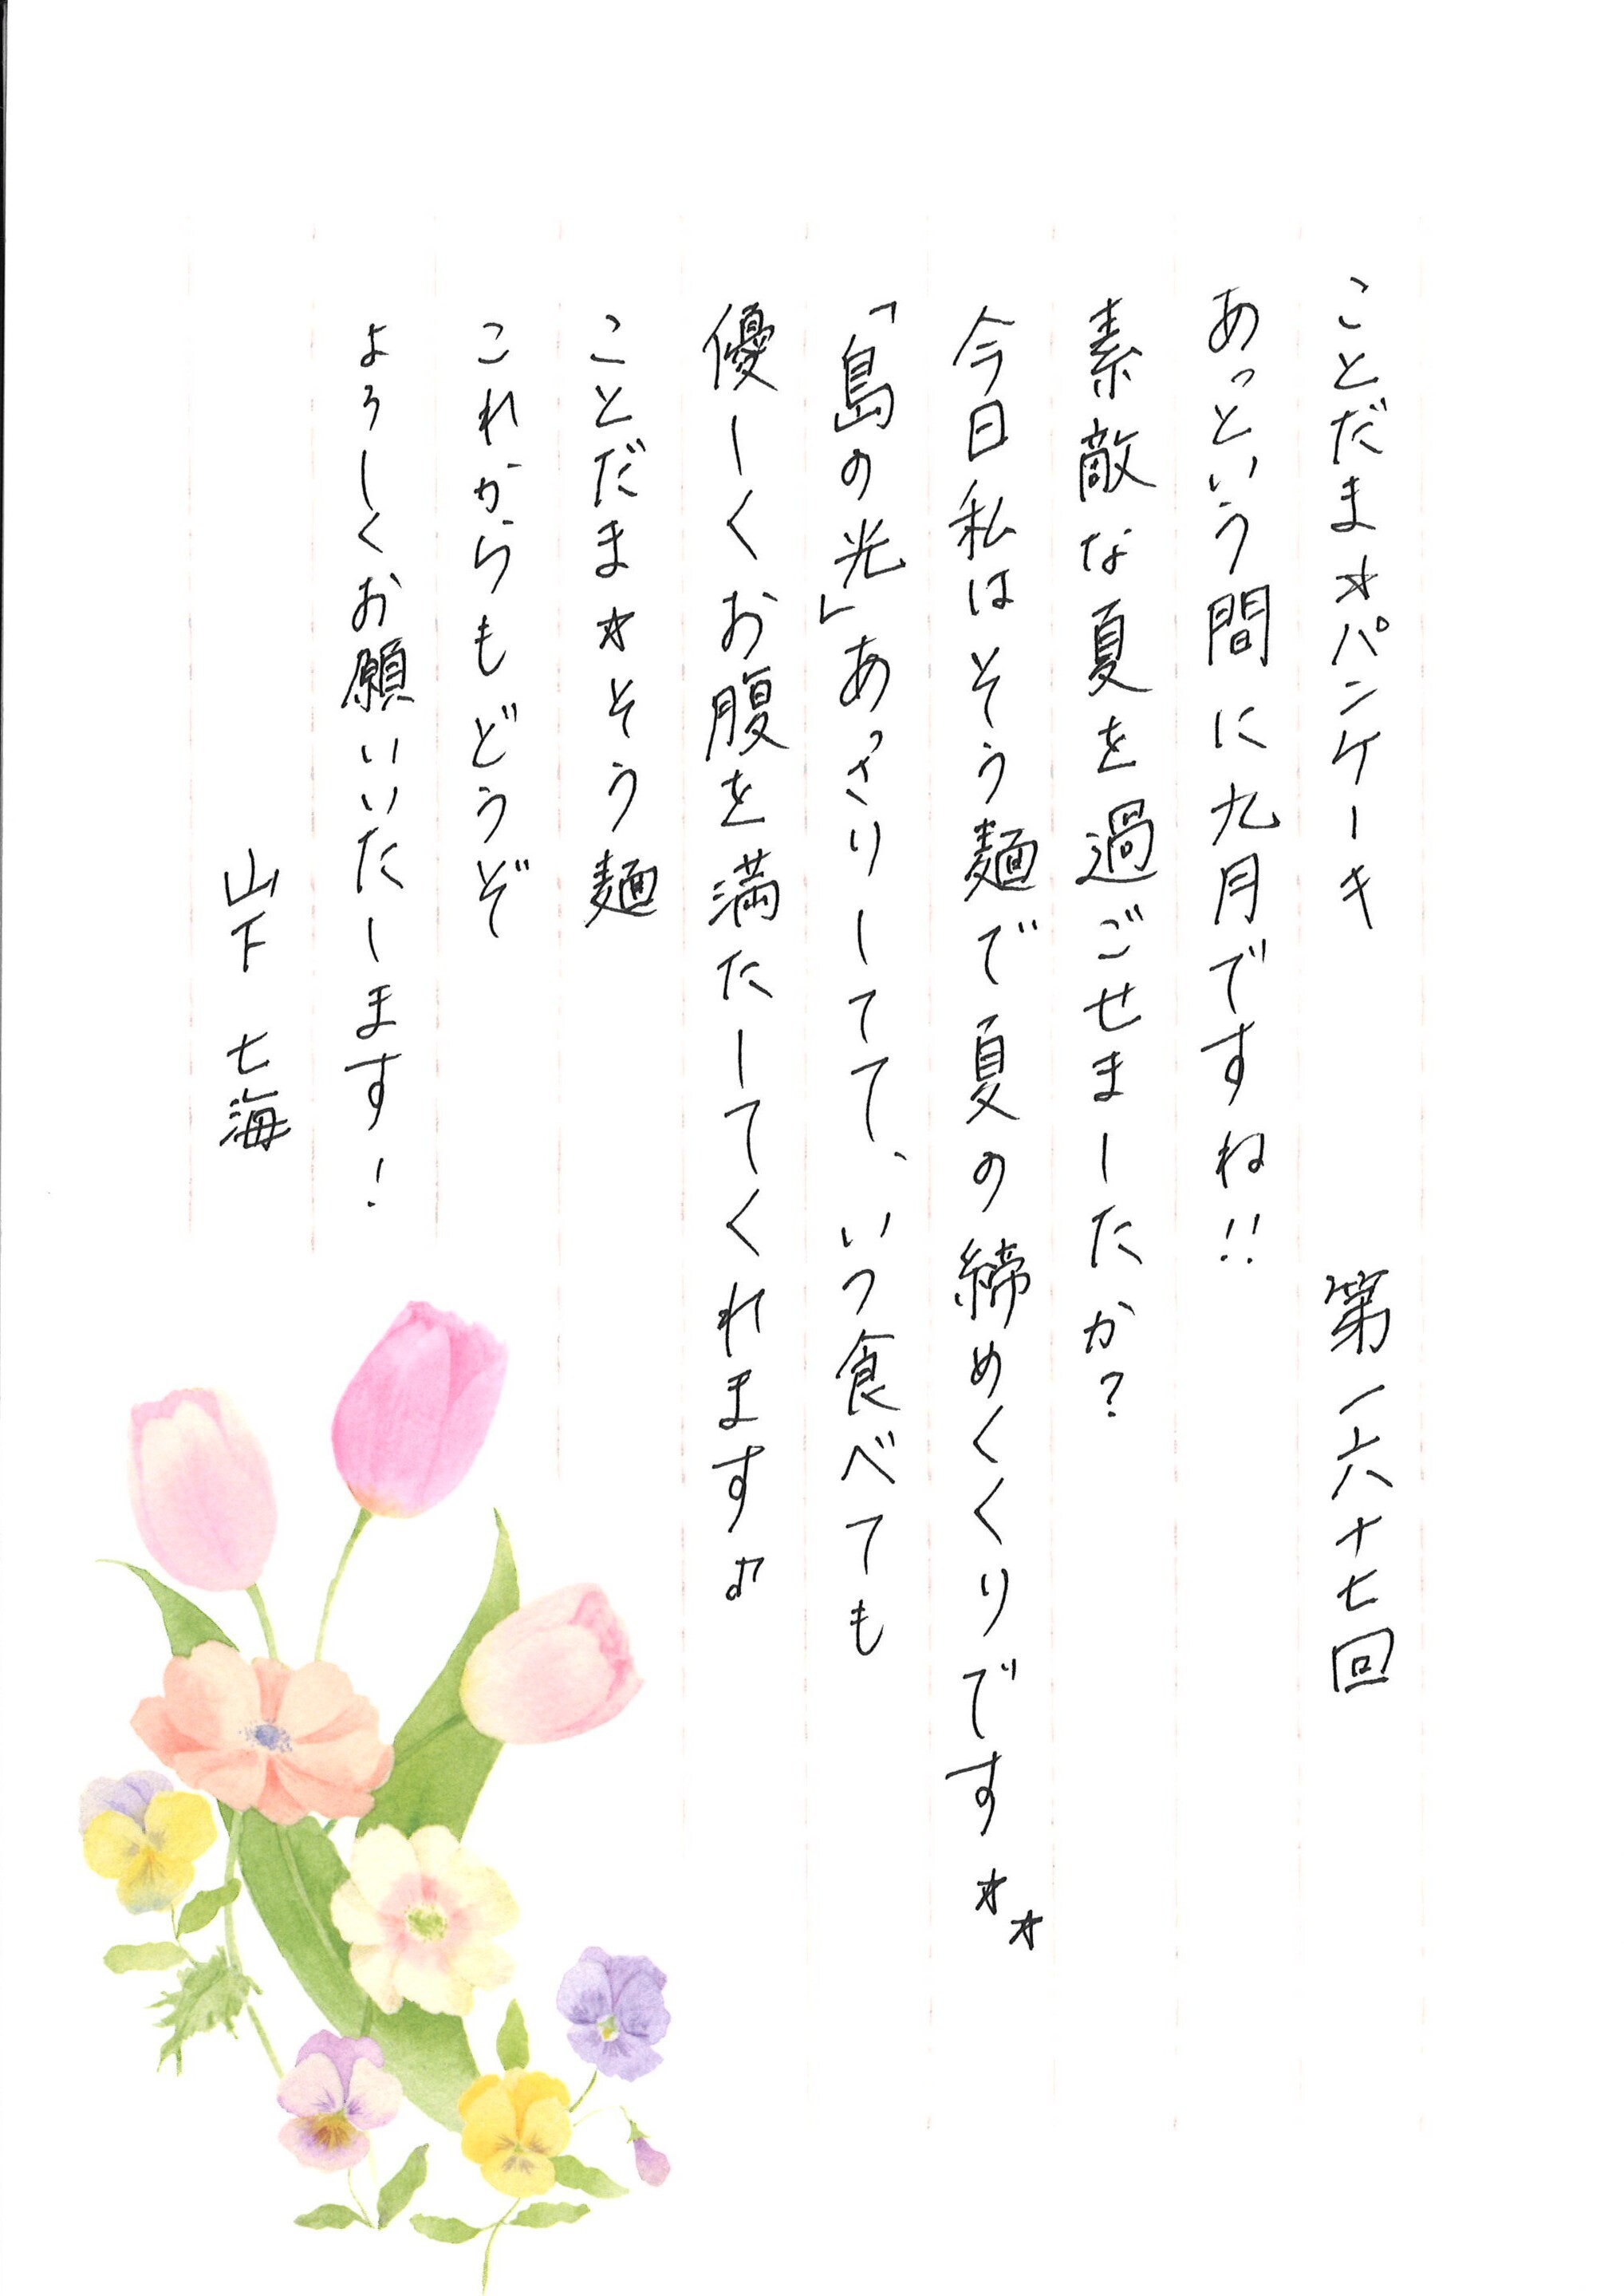 ことだま☆パンケーキ　第一六十七回
あっという間に九月ですね!!
素敵な夏を過ごせましたか?
今日私はそう麺で夏の締めくくりです☆☆
「島の光」あっさりしてて、いつ食べても
優しくお腹を満たしてくれます♫
ことだま☆そう麺
これからもどうぞ
よろしくお願いいたします!
山下　七海